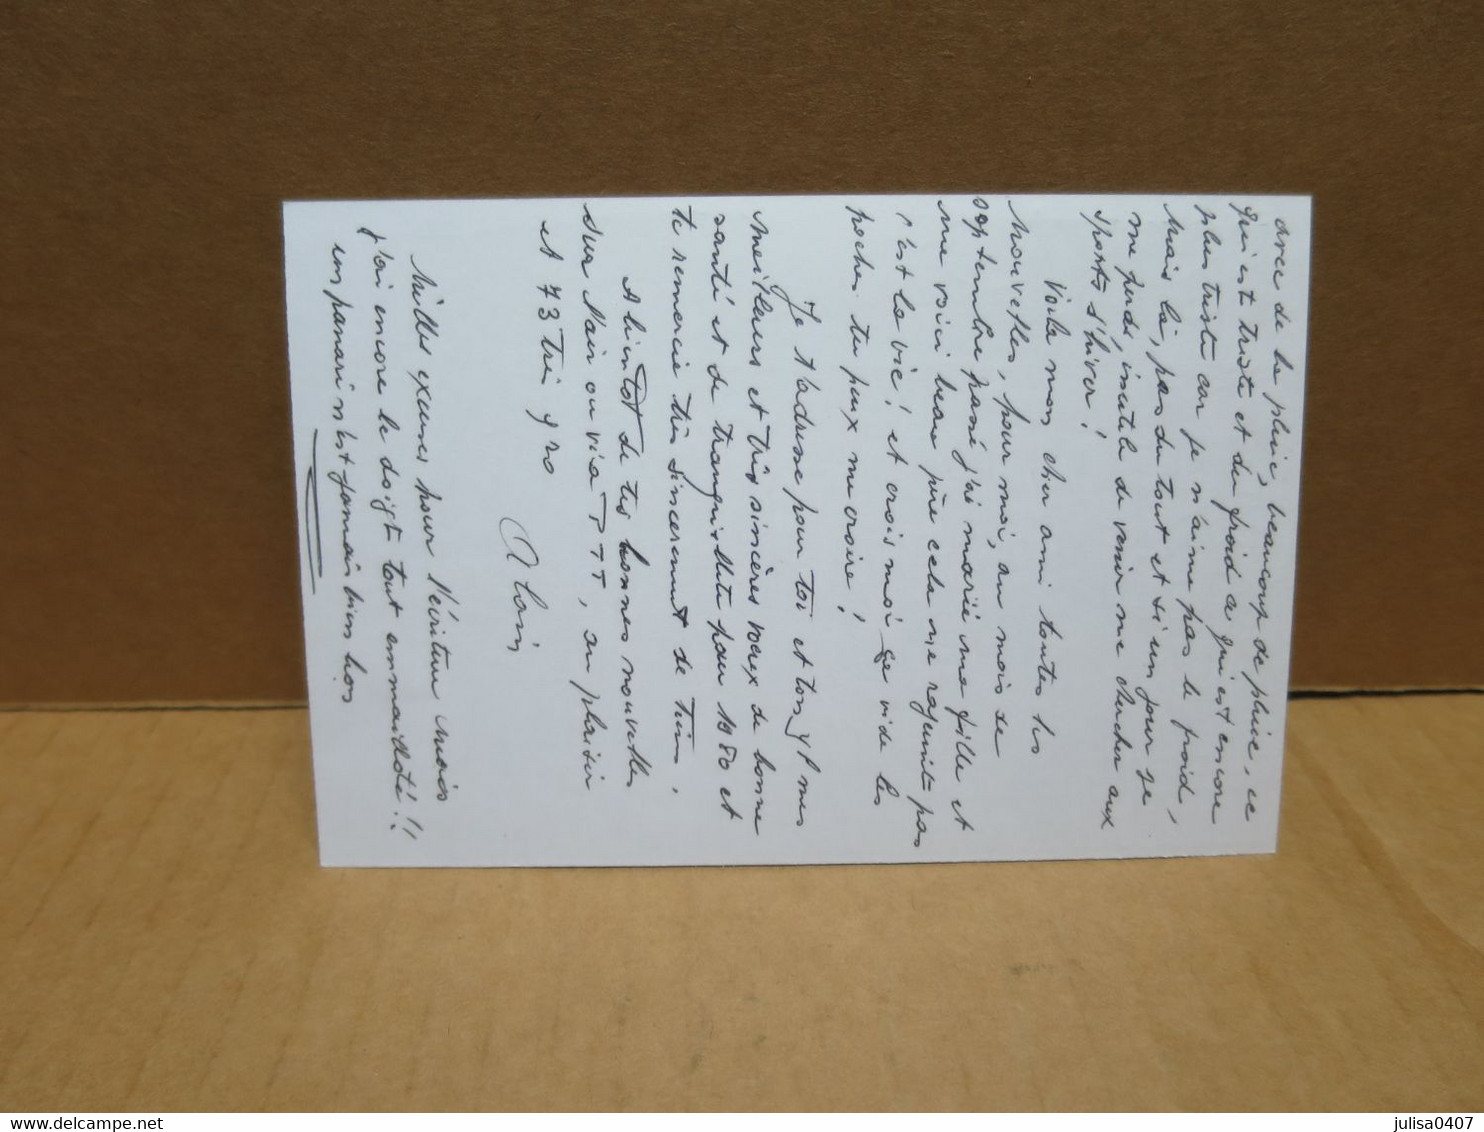 avec de la pluie, beaucoup de pluie, ce
qui est triste et du froid ce qui est encore
plus triste car je n'aime pas le froid,
Mais là, pas du tout et si un jour je
me perds, inutile de venir me chercher aux
sports d'hiver!
Voila mon cher ami toutes les
nouvelles, pour moi, au mois de
septembre passé j'ai marié ma fille et
me voici beau père cela ne rajeunit pas
c'est la vie! et crois moi ça vide les
poches tu peux me croire!
Je t'adresse pour toi et ton mes
meilleurs et très sincères voeux de bonne
santé et de tranquillité pour 1980 et
te remercie très sincèrement de tien.
A bientôt de tes bonnes nouvelles
sur l'air ou via PTT, au plaisir
et 73 très qro
Alain
Milles excuses pour l'écriture mais
j'ai encore le doigt tout emmailloté!!
un panari n'est jamais bien bon
delcampe.net
julisa0407